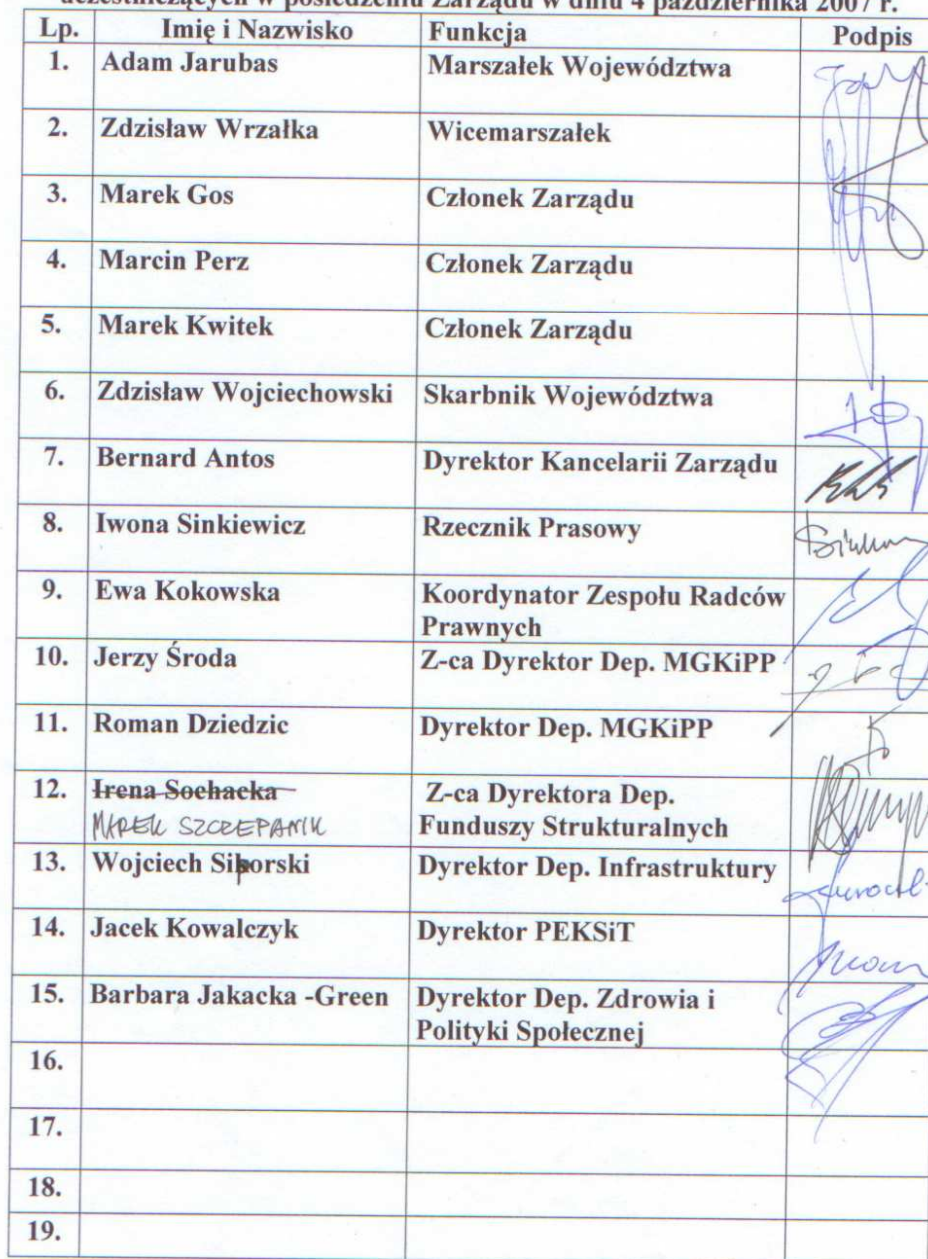 uczestniczących w posiedzeniu Zarządu w dniu 4 października 2007 r.
Lp. Imię i Nazwisko Funkcja Podpis
1. Adam Jarubas Marszałek Województwa
2. Zdzisław Wrzałka Wicemarszałek
3. Marek Gos Członek Zarządu
4. Marcin Perz Członek Zarządu
5. Marek Kwitek Członek Zarządu
6. Zdzisław Wojciechowski Skarbnik Województwa
7. Bernard Antos Dyrektor Kancelarii Zarządu
8. Iwona Sinkiewicz Rzecznik Prasowy
9. Ewa Kokowska Koordynator Zespołu Radców
Prawnych
10. Jerzy Środa Z-ca Dyrektor Dep. MGKiPP
11. Roman Dziedzic Dyrektor Dep. MGKiPP
12. Irena Sochacka Z-ca Dyrektora Dep.
MAREK SZCZEPANIK Funduszy Strukturalnych
13. Wojciech Siporski Dyrektor Dep. Infrastruktury
14. Jacek Kowalczyk Dyrektor PEKSiT
15. Barbara Jakacka -Green Dyrektor Dep. Zdrowia i
Polityki Społecznej
16.
17.
18.
19.